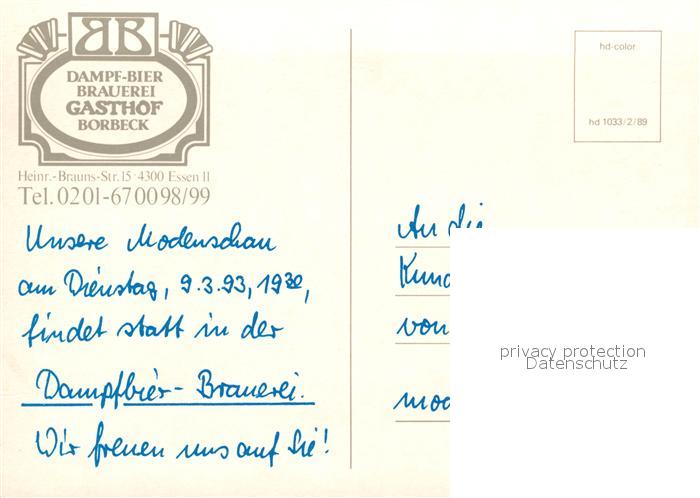 BB
DAMPF-BIER
BRAUEREI
GASTHOF
BORBECK
Heinr.-Brauns-Str. 15 · 4300 Essen 11
Tel. 0201-670098/99
Unsere Modenschau
am Dienstag, 9.3.93, 19³⁰,
findet statt in der
Dampfbier-Brauerei.
Wir freuen uns auf Sie!
hd-color
hd 1033/2/89
An die
Kund
von
mod
privacy protection
Datenschutz